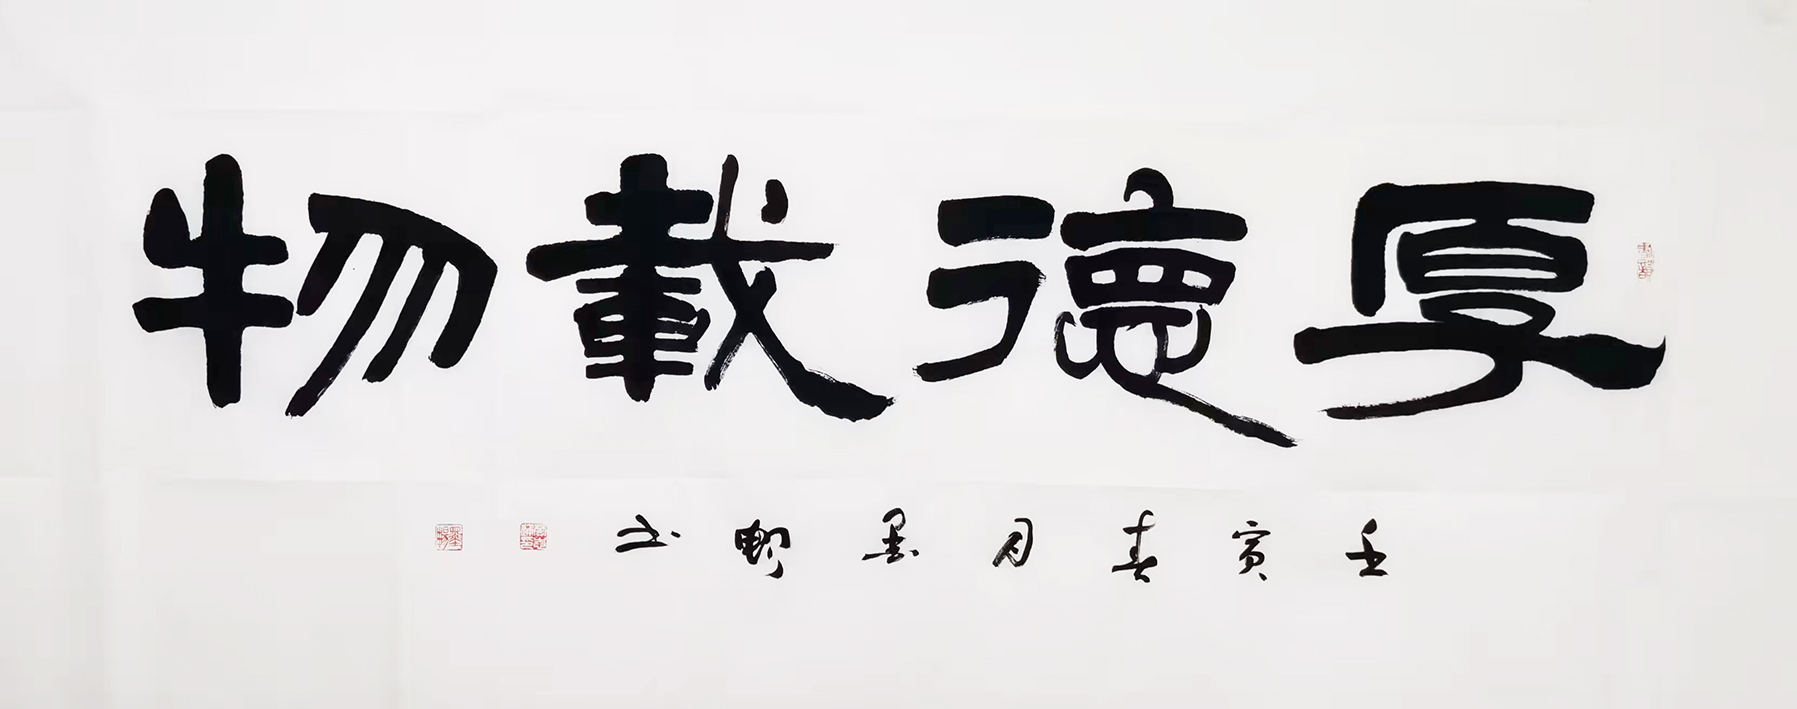 厚德載物
壬寅春月墨卿书